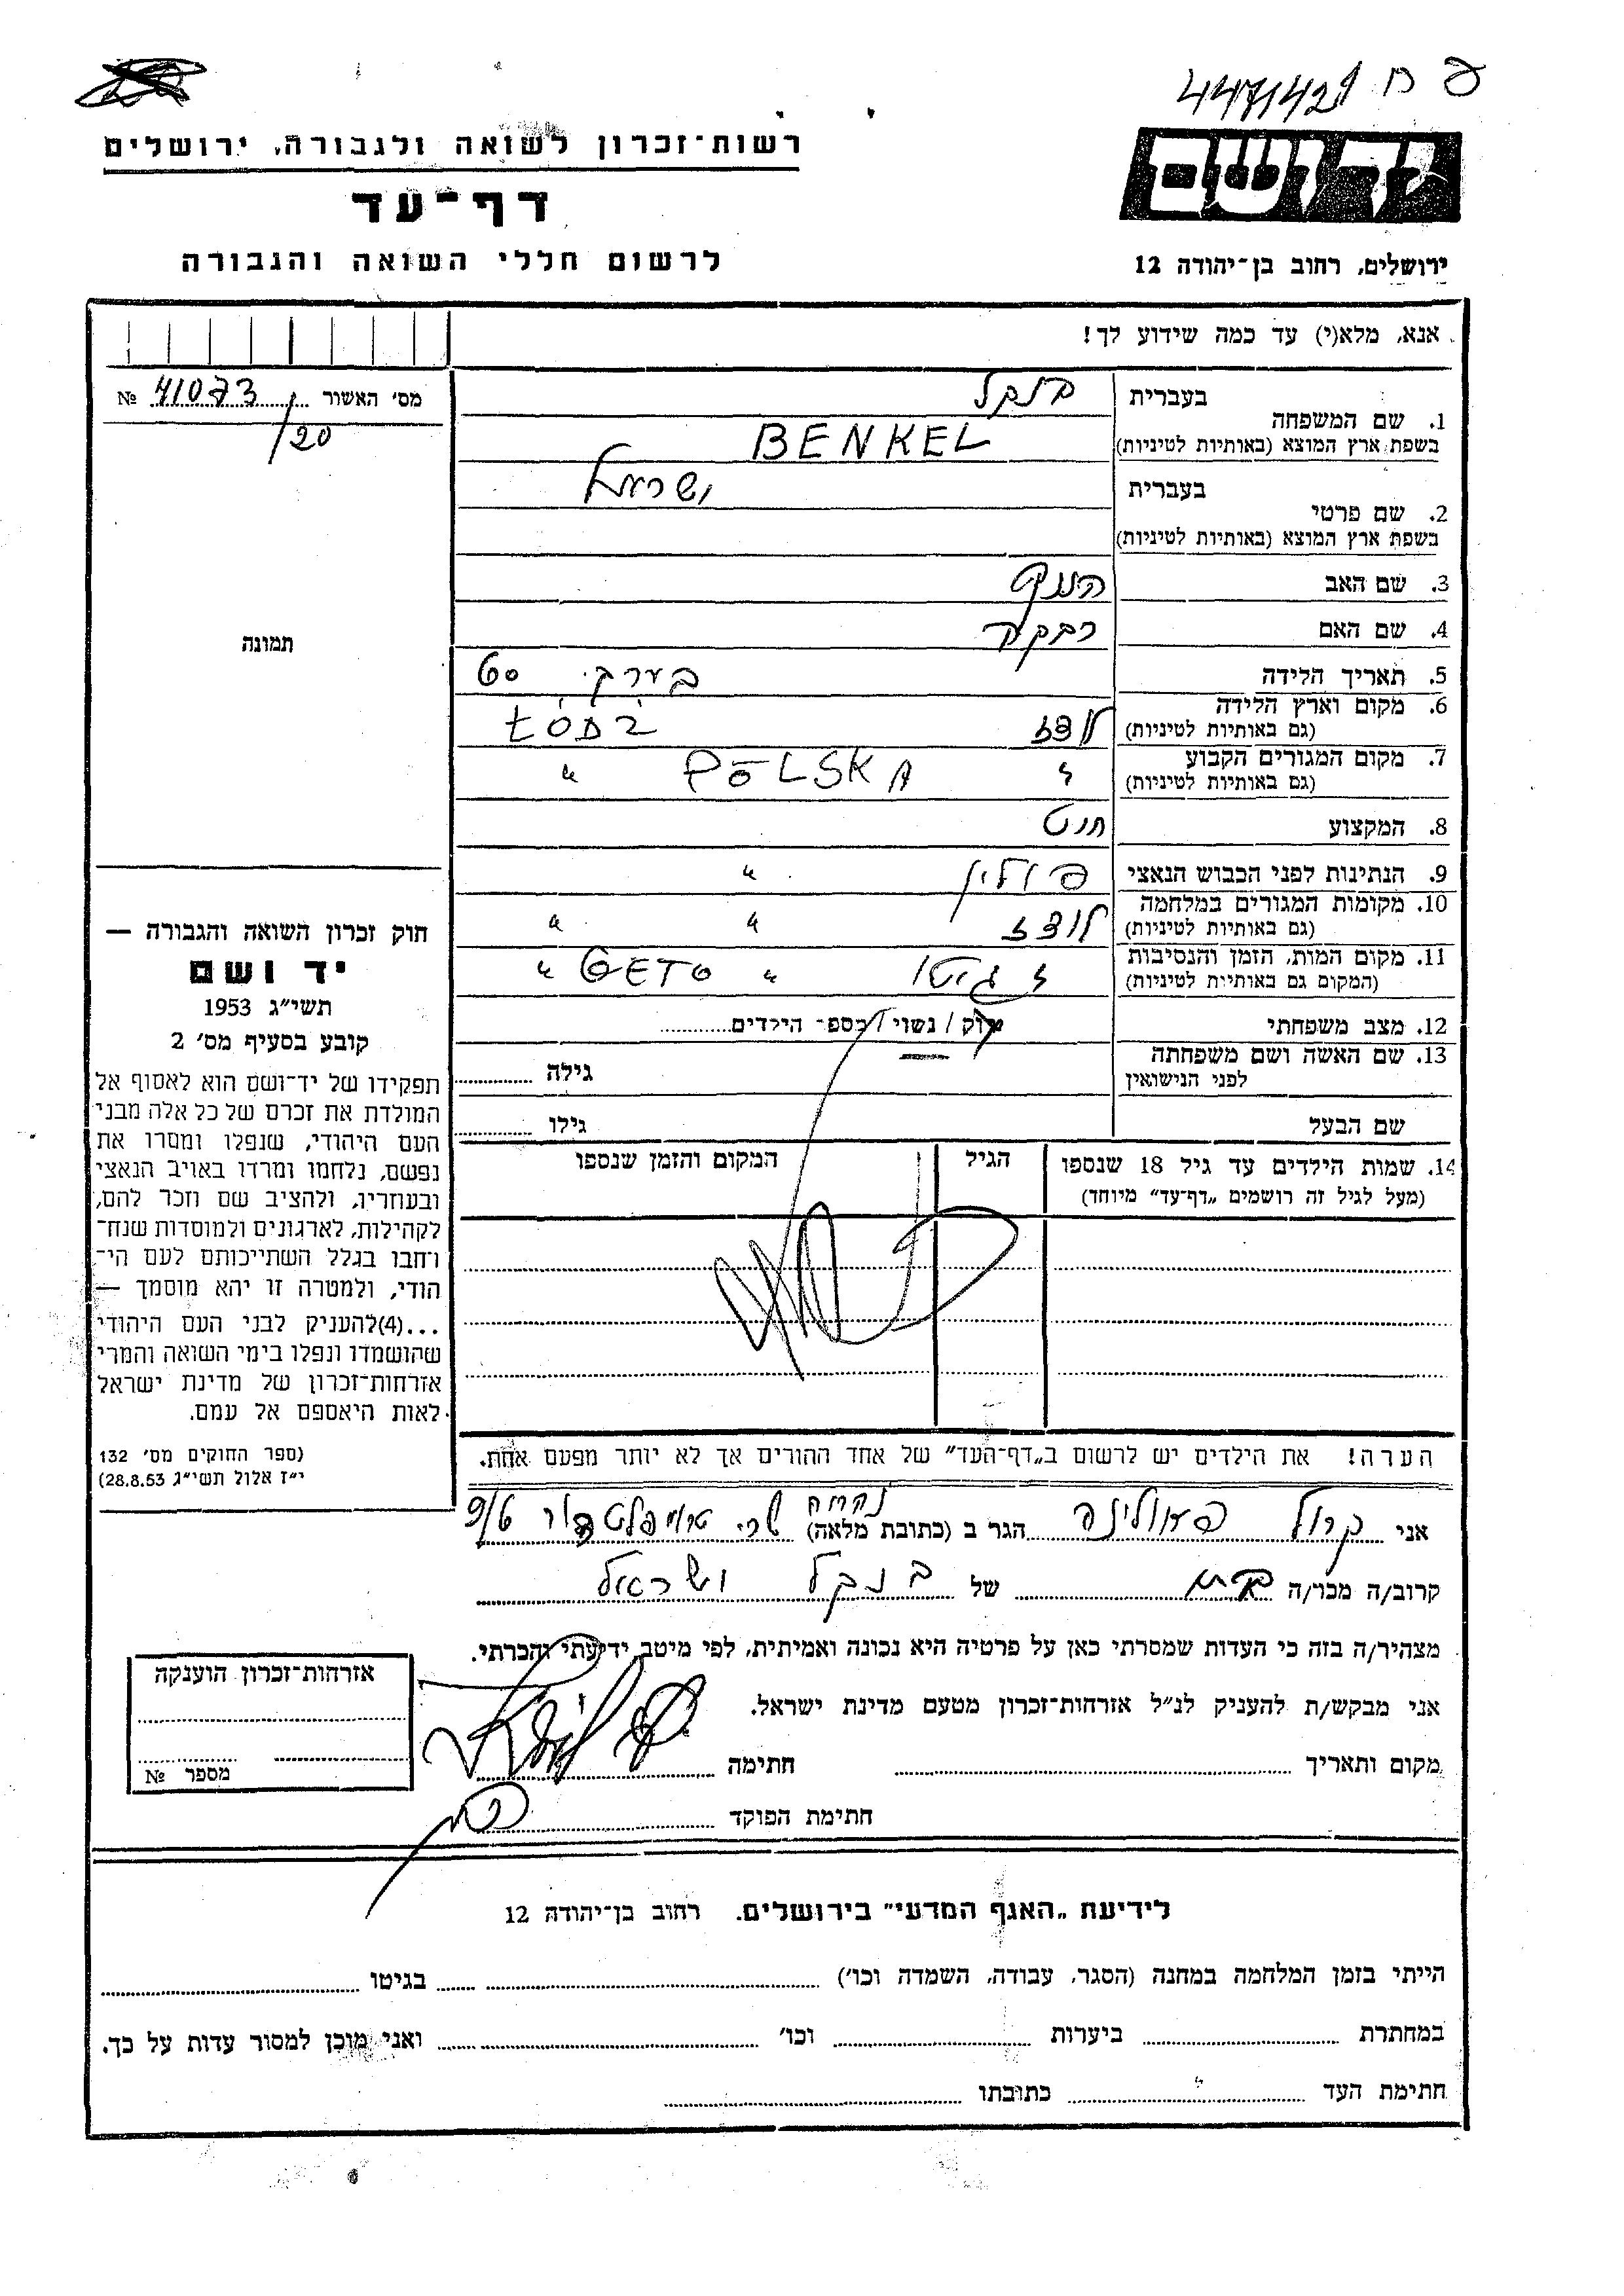 4471429
רשות־זכרון לשואה ולגבורה, ירושלים
דף־עד
לרשום חללי השואה והגבורה
יד ושם
ירושלים, רחוב בן־יהודה 12
אנא, מלא(י) עד כמה שידוע לך!
מס׳ האשור 41073 №
/20
תמונה
1. שם המשפחה בעברית בנקל
בשפת ארץ המוצא (באותיות לטיניות) BENKEL
2. שם פרטי בעברית ישראל
בשפת ארץ המוצא (באותיות לטיניות)
3. שם האב
4. שם האם רבקה
5. תאריך הלידה בערך 60
6. מקום וארץ הלידה
(גם באותיות לטיניות) לודז ŁÓDŹ
7. מקום המגורים הקבוע
(גם באותיות לטיניות) " POLSKA "
8. המקצוע חיט
9. הנתינות לפני הכבוש הנאצי פולין "
10. מקומות המגורים במלחמה
(גם באותיות לטיניות) לודז " "
11. מקום המות, הזמן והנסיבות
(המקום גם באותיות לטיניות) גיטו " GETO "
12. מצב משפחתי רוק / נשוי / מספ־ הילדים
13. שם האשה ושם משפחתה
לפני הנישואין גילה
שם הבעל גילו
14. שמות הילדים עד גיל 18 שנספו הגיל המקום והזמן שנספו
(מעל לגיל זה רושמים „דף־עד” מיוחד)
הערה! את הילדים יש לרשום ב„דף־העד” של אחד ההורים אך לא יותר מפעם אחת.
חוק זכרון השואה והגבורה —
יד ושם
תשי״ג 1953
קובע בסעיף מס׳ 2
תפקידו של יד־ושם הוא לאסוף אל
המולדת את זכרם של כל אלה מבני
העם היהודי, שנפלו ומסרו את
נפשם, נלחמו ומרדו באויב הנאצי
ובעוזריו, ולהציב שם וזכר להם,
לקהילות, לארגונים ולמוסדות שנח־
רחבו בגלל השתייכותם לעם הי־
הודי, ולמטרה זו יהא מוסמך —
...(4)להעניק לבני העם היהודי
שהושמדו ונפלו בימי השואה והמרי
אזרחות־זכרון של מדינת ישראל
לאות היאספם אל עמם.
(ספר החוקים מס׳ 132
י״ז אלול תשי״ג 28.8.53)
אני קרול פאולינה הגר ב (כתובת מלאה)
קרוב/ה מכר/ה בת של בנקל ישראל
מצהיר/ה בזה כי העדות שמסרתי כאן על פרטיה היא נכונה ואמיתית, לפי מיטב ידיעתי והכרתי.
אני מבקש/ת להעניק לנ״ל אזרחות־זכרון מטעם מדינת ישראל.
מקום ותאריך חתימה
חתימת הפוקד
אזרחות־זכרון הוענקה
מספר №
לידיעת „האגף המדעי” בירושלים. רחוב בן־יהודה 12
הייתי בזמן המלחמה במחנה (הסגר, עבודה, השמדה וכו׳) בגיטו
במחתרת ביערות וכו׳ ואני מוכן למסור עדות על כך.
חתימת העד כתובתו